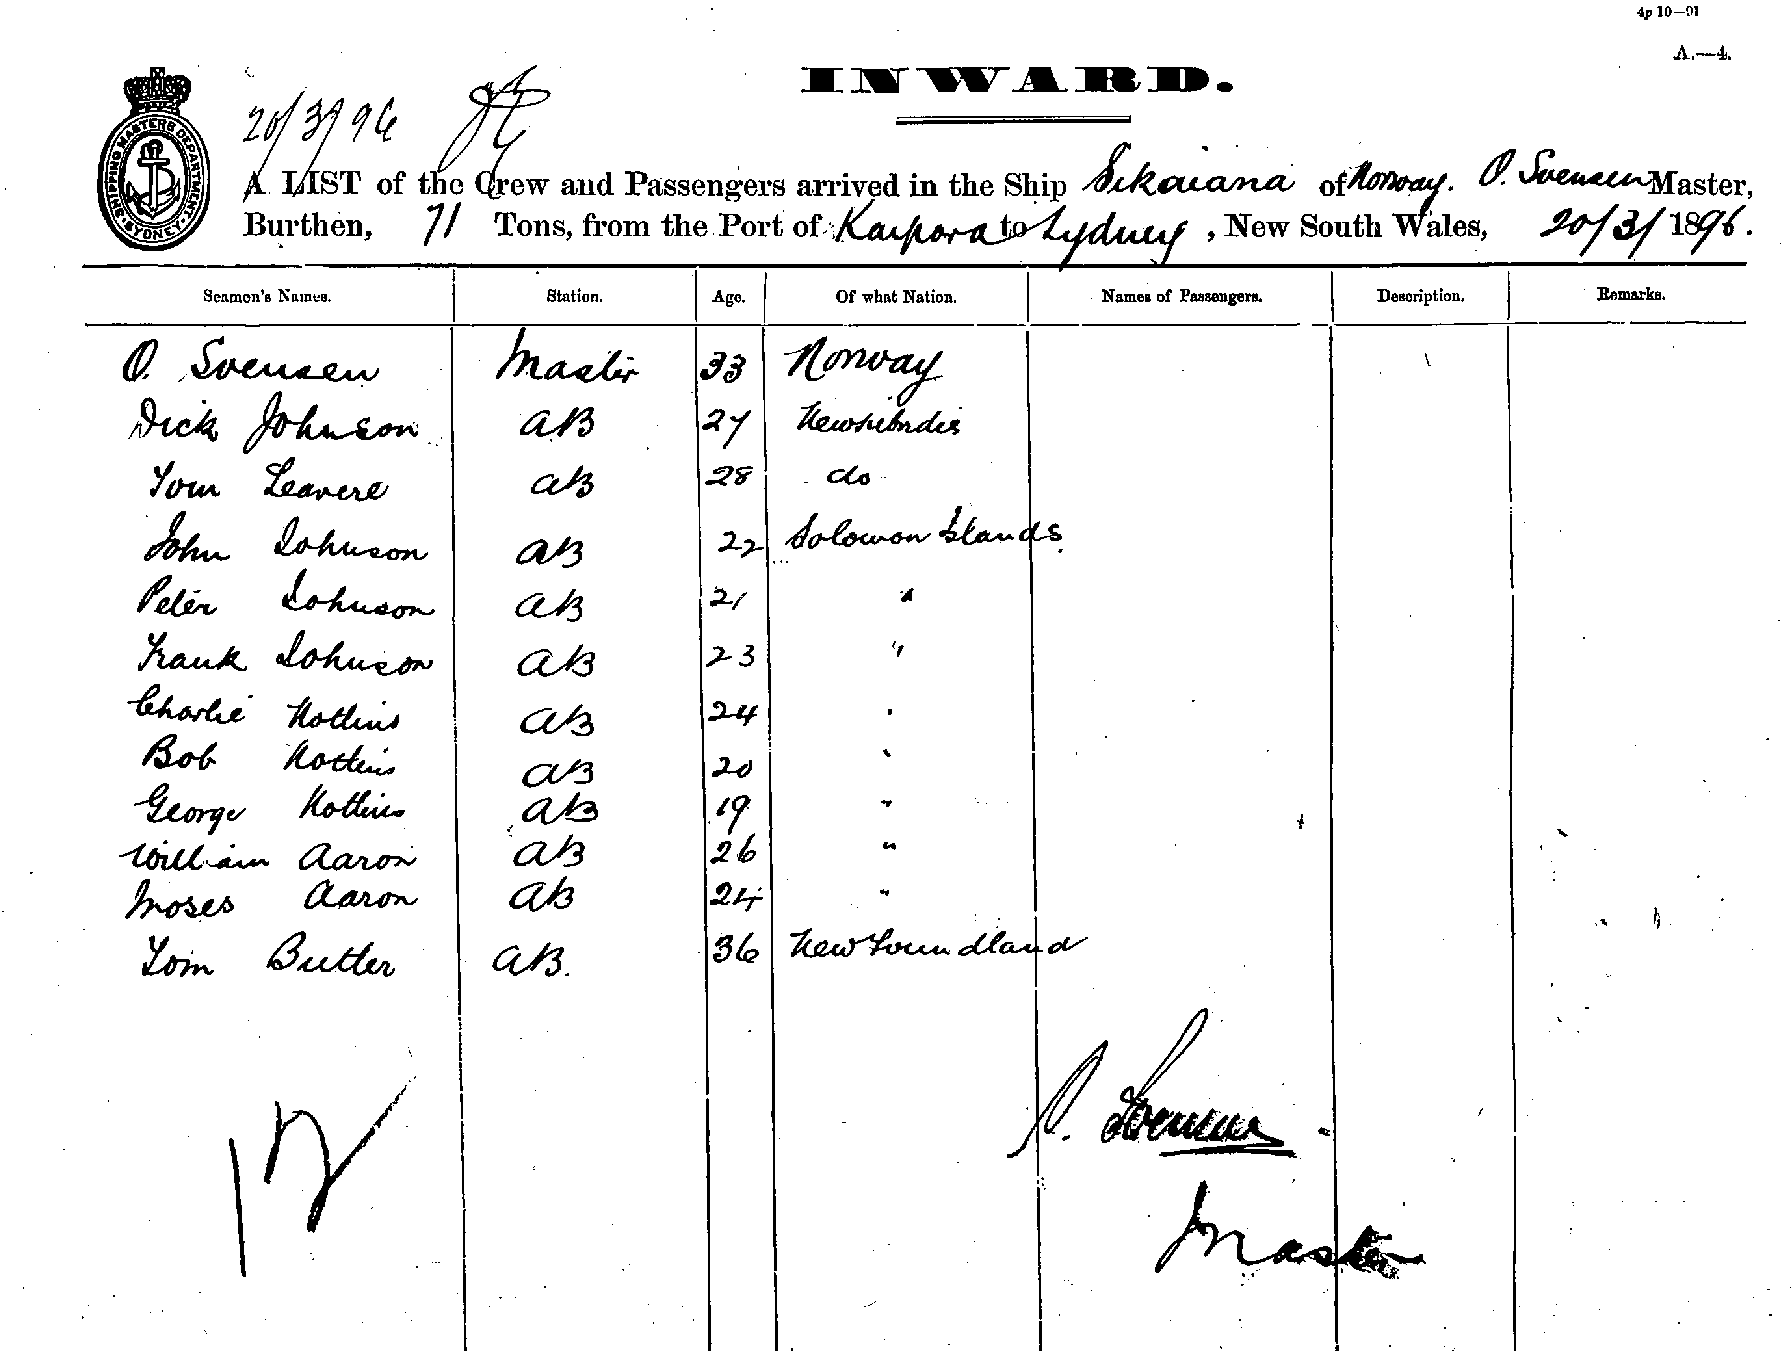 4p 10—91
A.—4.
INWARD.
SHIPPING MASTERS DEPARTMENT SYDNEY
20/3/96
A LIST of the Crew and Passengers arrived in the Ship Sikaiana of Norway. O. Svensen Master,
Burthen, 71 Tons, from the Port of Kaipora to Sydney, New South Wales, 20/3/1896.
Seamen's Names. Station. Age. Of what Nation. Names of Passengers. Description. Remarks.
O. Svensen Master 33 Norway
Dick Johnson AB 27 Newhibrdis
Tom Leavere AB 28 do
John Johnson AB 22 Solomon Islands
Peter Johnson AB 21 "
Frank Johnson AB 23 "
Charlie Kottins AB 24 "
Bob Kottins AB 20 "
George Kottins AB 19 "
William Aaron AB 26 "
Moses Aaron AB 24 "
Tom Butler AB. 36 Newfoundland
O. Svensen
Master
12